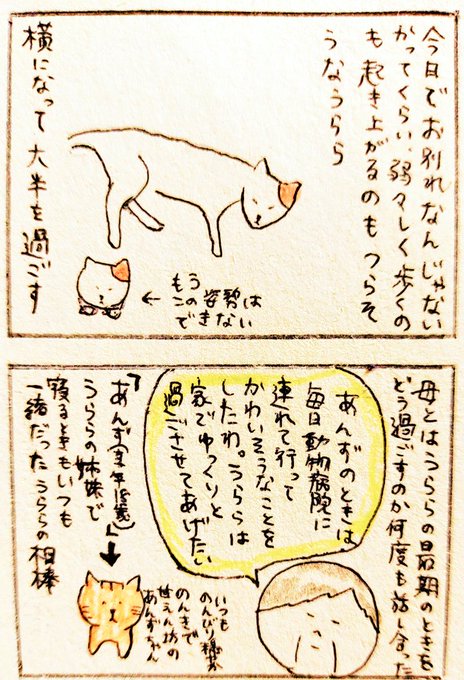 今日でお別れなんじゃない
かってくらい、弱々しく歩くの
も起き上がるのもつらそ
うなうらら
横になって大半を過ごす
もうこの姿勢は
できない
母とはうららの最期のときを
どう過ごすのか何度も話し合った
あんずのときは
毎日動物病院に
連れて行って
かわいそうなことを
したわ。うららは
家でゆっくりと
過ごさせてあげたい
うららの姉妹で
寝るときもいつも
一緒だったうららの相棒
いつも
のんびり穏やか
のんきで
甘えん坊の
あんずちゃん